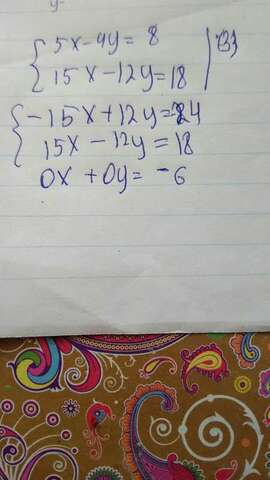 5x-4y= 8 |(-3)
15x-12y=18
-15x+12y=-24
15x-12y=18
0x+0y= -6